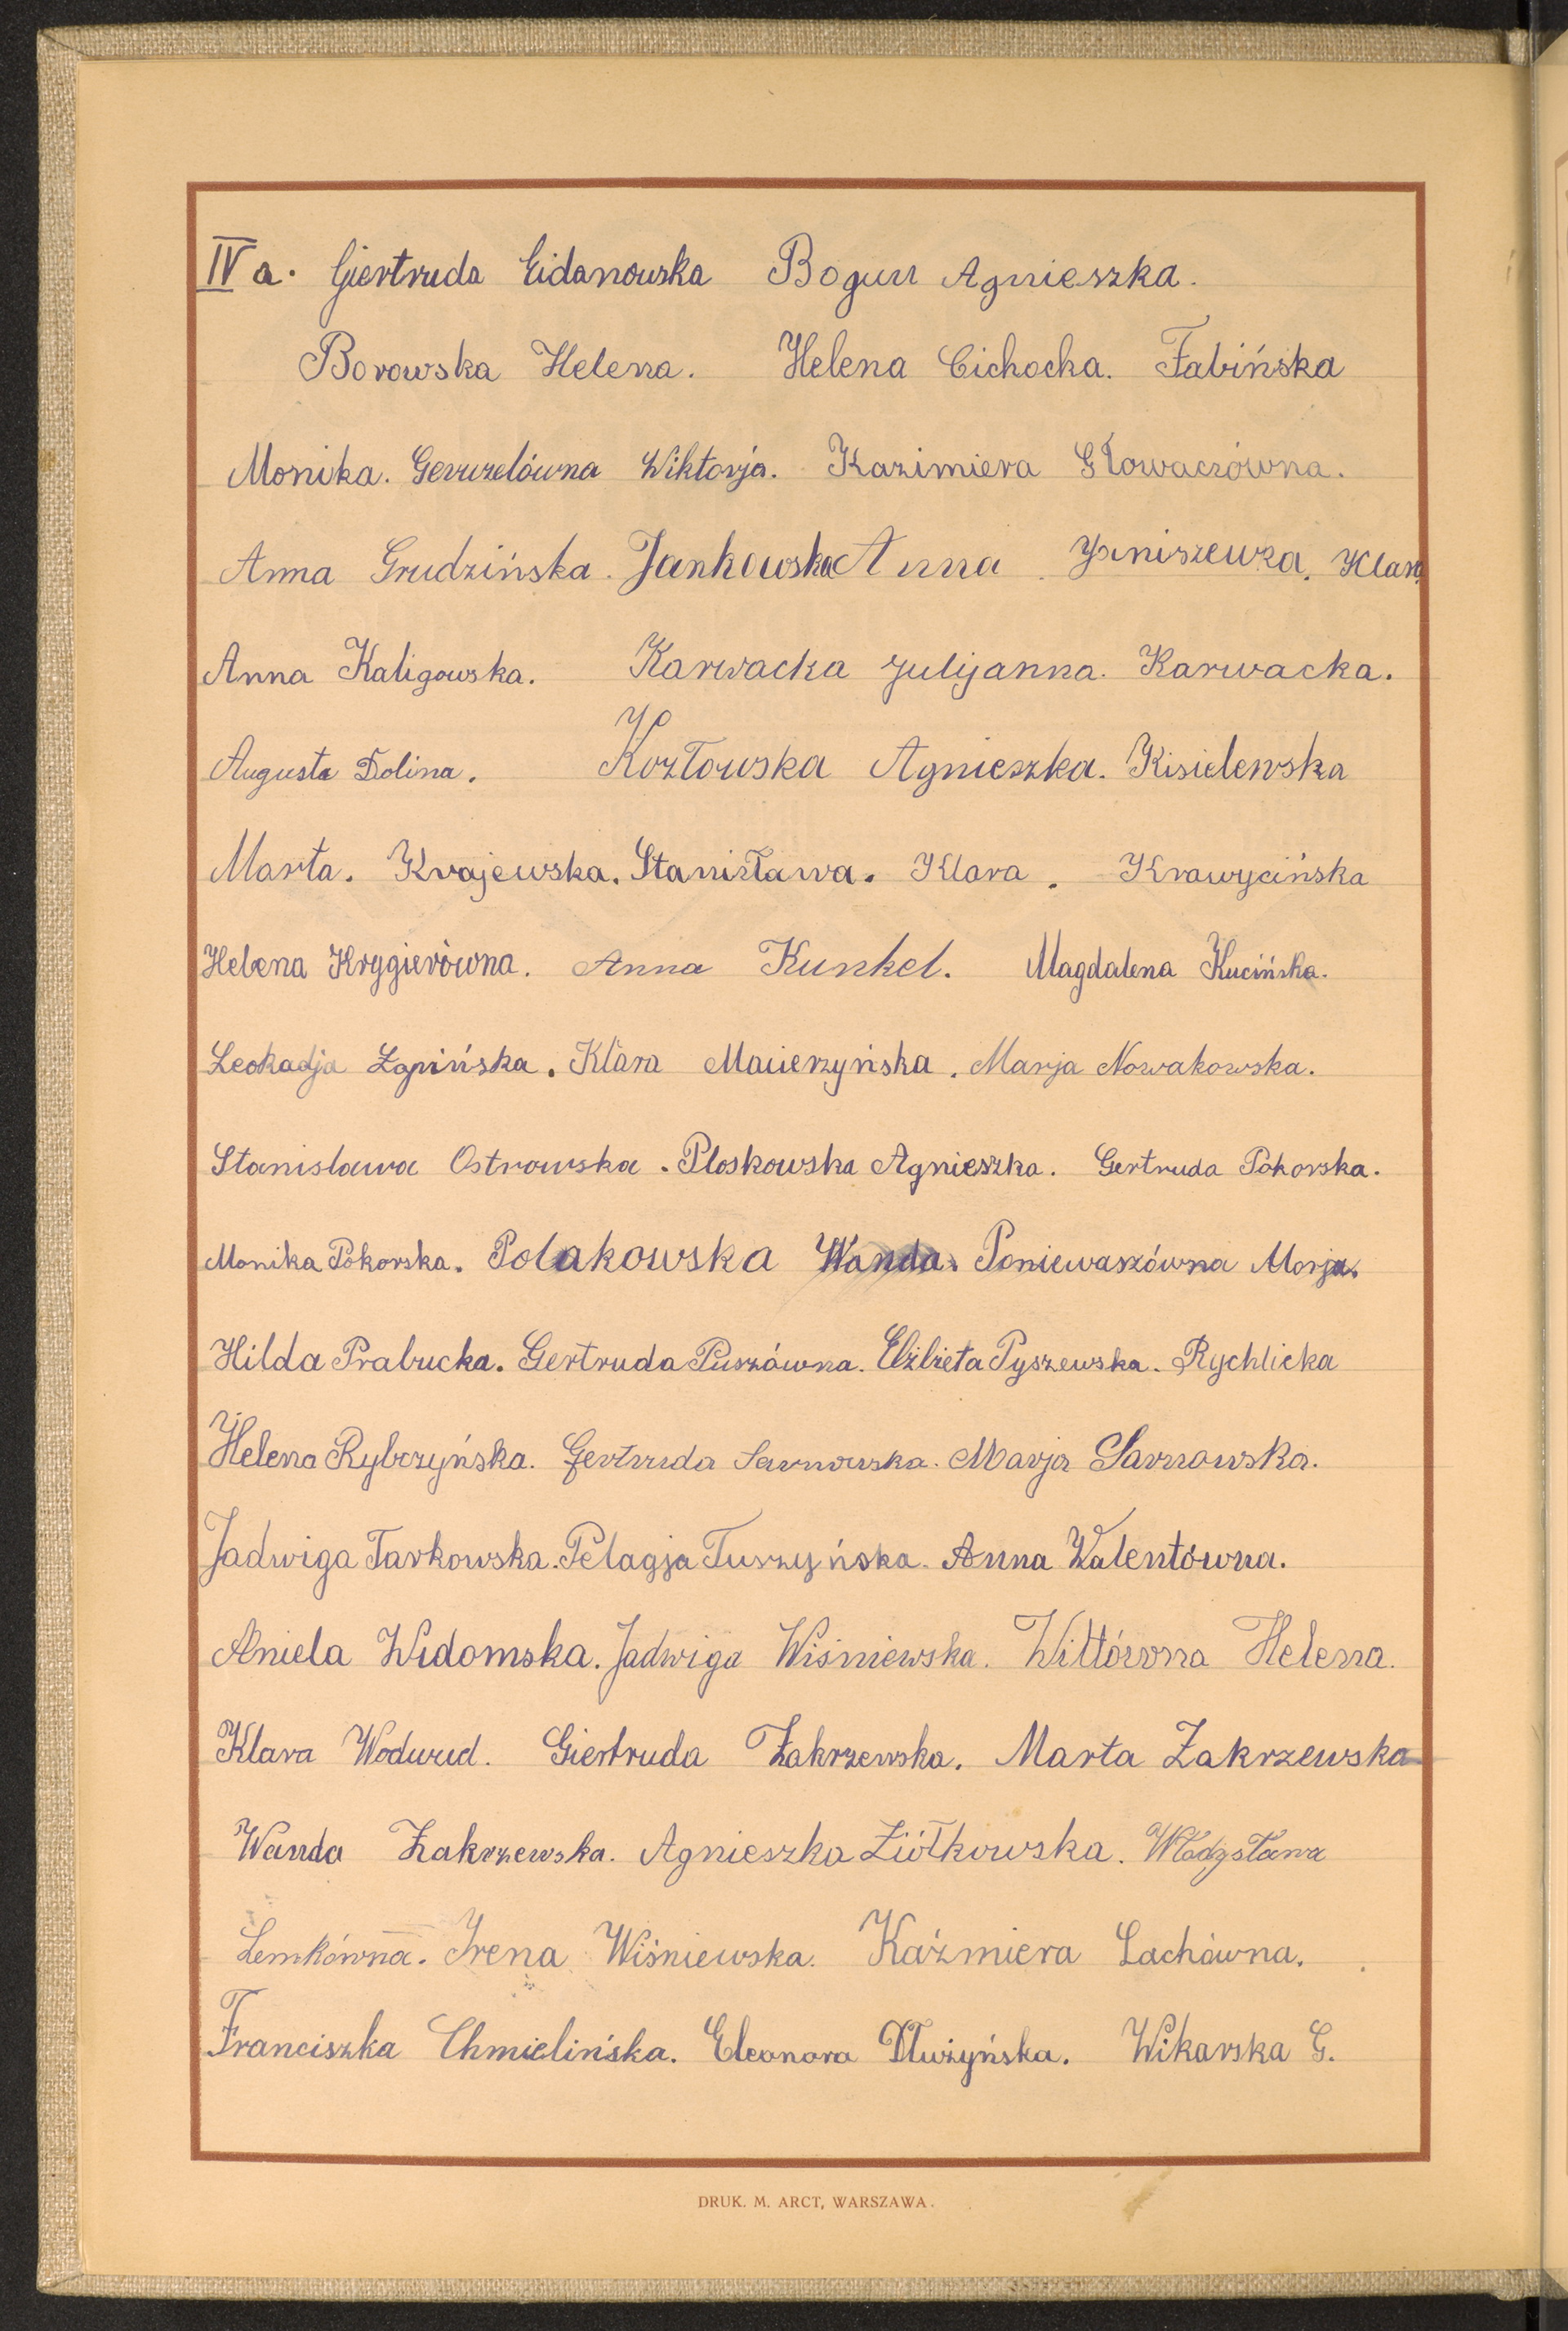 IV a. Giertruda Eidanowska Bogun Agnieszka.
Borowska Helena. Helena Cichocka. Fabińska
Monika. Gerwzelówna Wiktorja. Kazimiera Głowaczówna.
Anna Grudzińska. Jankowska Anna. Janiszewza. Klara
Anna Kaligowska. Karwacka Julijanna. Karwacka.
Augusta Dolina. Kozłowska Agnieszka. Kisielewska
Marta. Krajewska. Stanisława. Klara. Krawycińska
Helena Krygierówna. Anna Kunkel. Magdalena Kucińska.
Leokadja Łapińska. Klara Macierzyńska. Marja Nowakowska.
Stanislawa Ostrowska. Ploskowska Agnieszka. Gertruda Pokorska.
Monika Pokorska. Polakowska Wanda. Poniewaszówna Marja.
Hilda Prabucka. Gertruda Puszówna. Elżbieta Pyszewska. Rychlicka
Helena Rybczyńska. Gertruda Sarnowska. Marja Sarnowska.
Jadwiga Tarkowska. Pelagja Turzyńska. Anna Walentówna.
Aniela Widomska. Jadwiga Wiśniewska. Wittówna Helena.
Klara Wodurud. Giertruda Zakrzewska. Marta Zakrzewska
Wanda Zakrzewska. Agnieszka Ziółkowska. Władysława
Lemkówna. Irena Wiśniewska. Kaźmiera Lachówna.
Franciszka Chmielińska. Eleonora Dłużyńska. Wikarska G.
DRUK. M. ARCT, WARSZAWA.